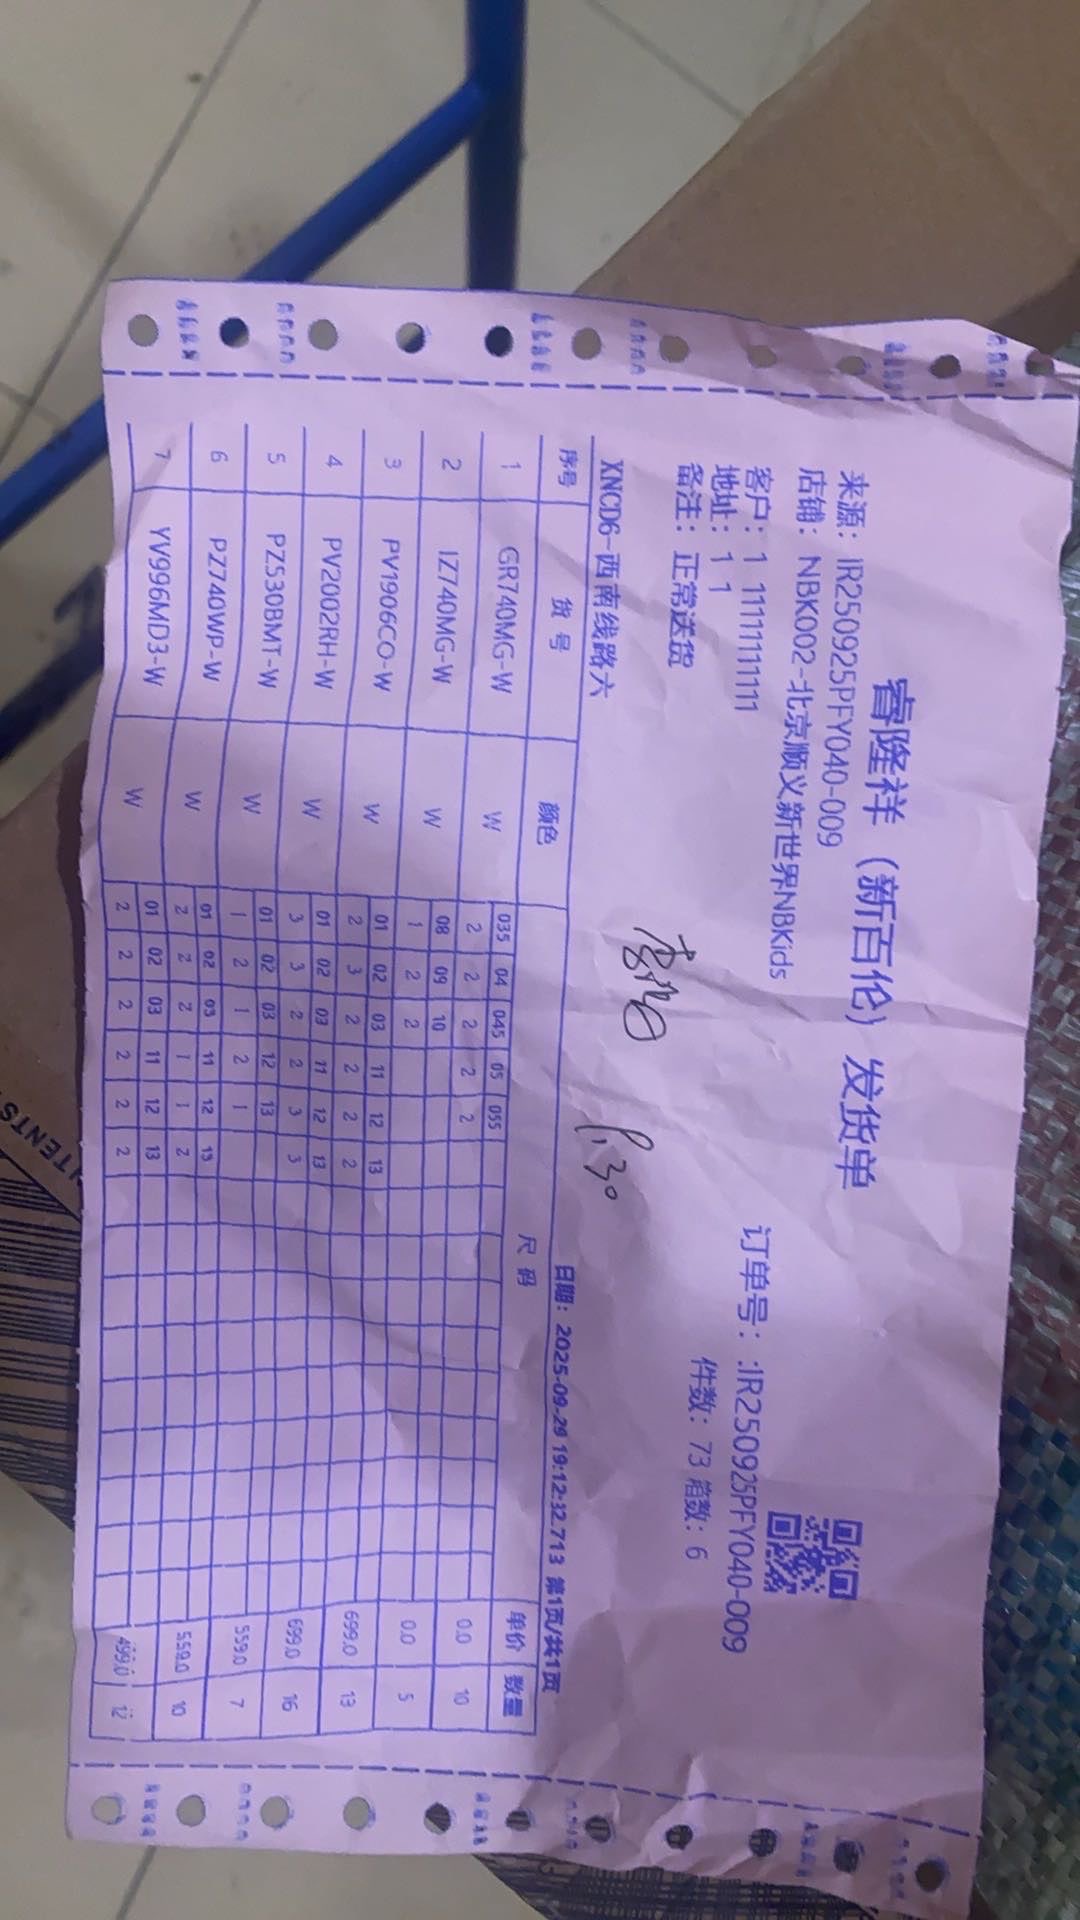 睿隆祥（新百伦）发货单
来源：IR250925PFY040-009
店铺：NBK002-北京顺义新世界NBKids
订单号：:IR250925PFY040-009
客户：1 11111111111
地址：1 1
件数：73 箱数：6
备注：正常送货
1.30
XNCD6-西南线路六
日期：2025-09-29 19:12:32.713 第1页/共1页
序号 货号 颜色 尺码 单价 数量
035 04 045 05 055
1 GR740MG-W W 2 2 2 2 2 0.0 10
08 09 10
2 IZ740MG-W W 1 2 2 0.0 5
01 02 03 11 12 13
3 PV1906CO-W W 2 3 2 2 2 2 699.0 13
01 02 03 11 12 13
4 PV2002RH-W W 3 3 2 2 3 3 699.0 16
01 02 03 12 13
5 PZ530BMT-W W 1 2 1 2 1 559.0 7
01 02 03 11 12 13
6 PZ740WP-W W 2 2 2 1 1 2 559.0 10
01 02 03 11 12 13
7 YV996MD3-W W 2 2 2 2 2 2 499.0 12